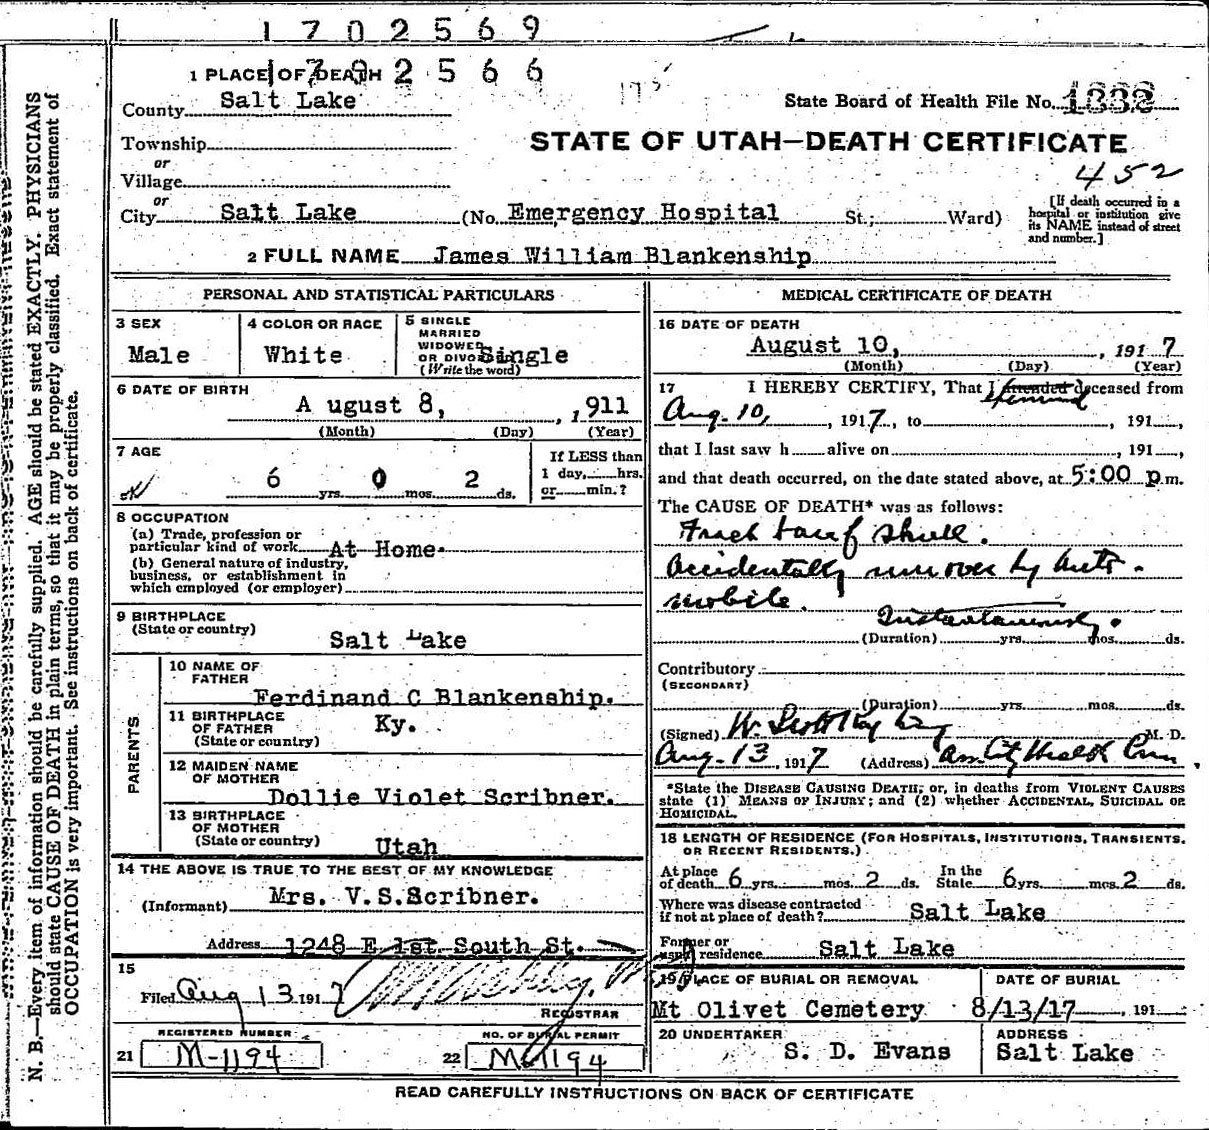 1702569
1 PLACE OF DEATH 1702566
County Salt Lake
State Board of Health File No. 1332
Township
or
Village
or
City Salt Lake (No. Emergency Hospital St.; Ward)
STATE OF UTAH—DEATH CERTIFICATE
452
[If death occurred in a
hospital or institution give
its NAME instead of street
and number.]
2 FULL NAME James William Blankenship
PERSONAL AND STATISTICAL PARTICULARS
3 SEX
Male
4 COLOR OR RACE
White
5 SINGLE
MARRIED
WIDOWED
OR DIVORCED Single
(Write the word)
6 DATE OF BIRTH
A ugust 8, , 1911
(Month) (Day) (Year)
7 AGE
6 yrs. 0 mos. 2 ds.
If LESS than
1 day, hrs.
or min.?
8 OCCUPATION
(a) Trade, profession or
particular kind of work At Home
(b) General nature of industry,
business, or establishment in
which employed (or employer)
9 BIRTHPLACE
(State or country)
Salt Lake
PARENTS
10 NAME OF
FATHER
Ferdinand C Blankenship.
11 BIRTHPLACE
OF FATHER
(State or country)
Ky.
12 MAIDEN NAME
OF MOTHER
Dollie Violet Scribner.
13 BIRTHPLACE
OF MOTHER
(State or country)
Utah
14 THE ABOVE IS TRUE TO THE BEST OF MY KNOWLEDGE
(Informant) Mrs. V.S.Scribner.
Address 1248 E 1st South St.
15
Filed Aug 13 1917
REGISTRAR
REGISTERED NUMBER
21 M-1194
NO. OF BURIAL PERMIT
22 M-1194
MEDICAL CERTIFICATE OF DEATH
16 DATE OF DEATH
August 10, , 1917
(Month) (Day) (Year)
17 I HEREBY CERTIFY, That I attended deceased from
Aug. 10, , 1917, to , 191 ,
that I last saw h alive on , 191 ,
and that death occurred, on the date stated above, at 5:00 p.m.
The CAUSE OF DEATH* was as follows:
Fracture of skull.
Accidentally run over by auto-
mobile.
Instantaneously.
(Duration) yrs. mos. ds.
Contributory
(SECONDARY)
(Duration) yrs. mos. ds.
(Signed) W. Scott M. D.
Aug. 13, 1917 (Address) City Health
*State the DISEASE CAUSING DEATH; or, in deaths from VIOLENT CAUSES
state (1) MEANS OF INJURY; and (2) whether ACCIDENTAL, SUICIDAL OR
HOMICIDAL.
18 LENGTH OF RESIDENCE (FOR HOSPITALS, INSTITUTIONS, TRANSIENTS,
OR RECENT RESIDENTS.)
At place
of death 6 yrs. mos. 2 ds. In the
State 6 yrs. mos. 2 ds.
Where was disease contracted
if not at place of death? Salt Lake
Former or
usual residence Salt Lake
19 PLACE OF BURIAL OR REMOVAL
Mt Olivet Cemetery
DATE OF BURIAL
8/13/17 , 191
20 UNDERTAKER
S. D. Evans
ADDRESS
Salt Lake
READ CAREFULLY INSTRUCTIONS ON BACK OF CERTIFICATE
N. B.—Every item of information should be carefully supplied. AGE should be stated EXACTLY. PHYSICIANS
should state CAUSE OF DEATH in plain terms, so that it may be properly classified. Exact statement of
OCCUPATION is very important. See instructions on back of certificate.